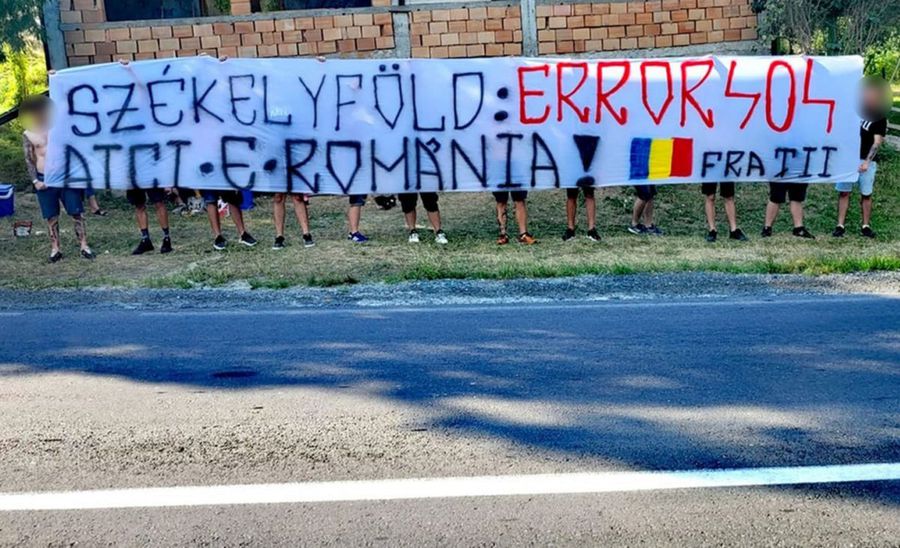 SZÉKELYFÖLD: ERROR404
AICI·E·ROMÂNIA! FRATII